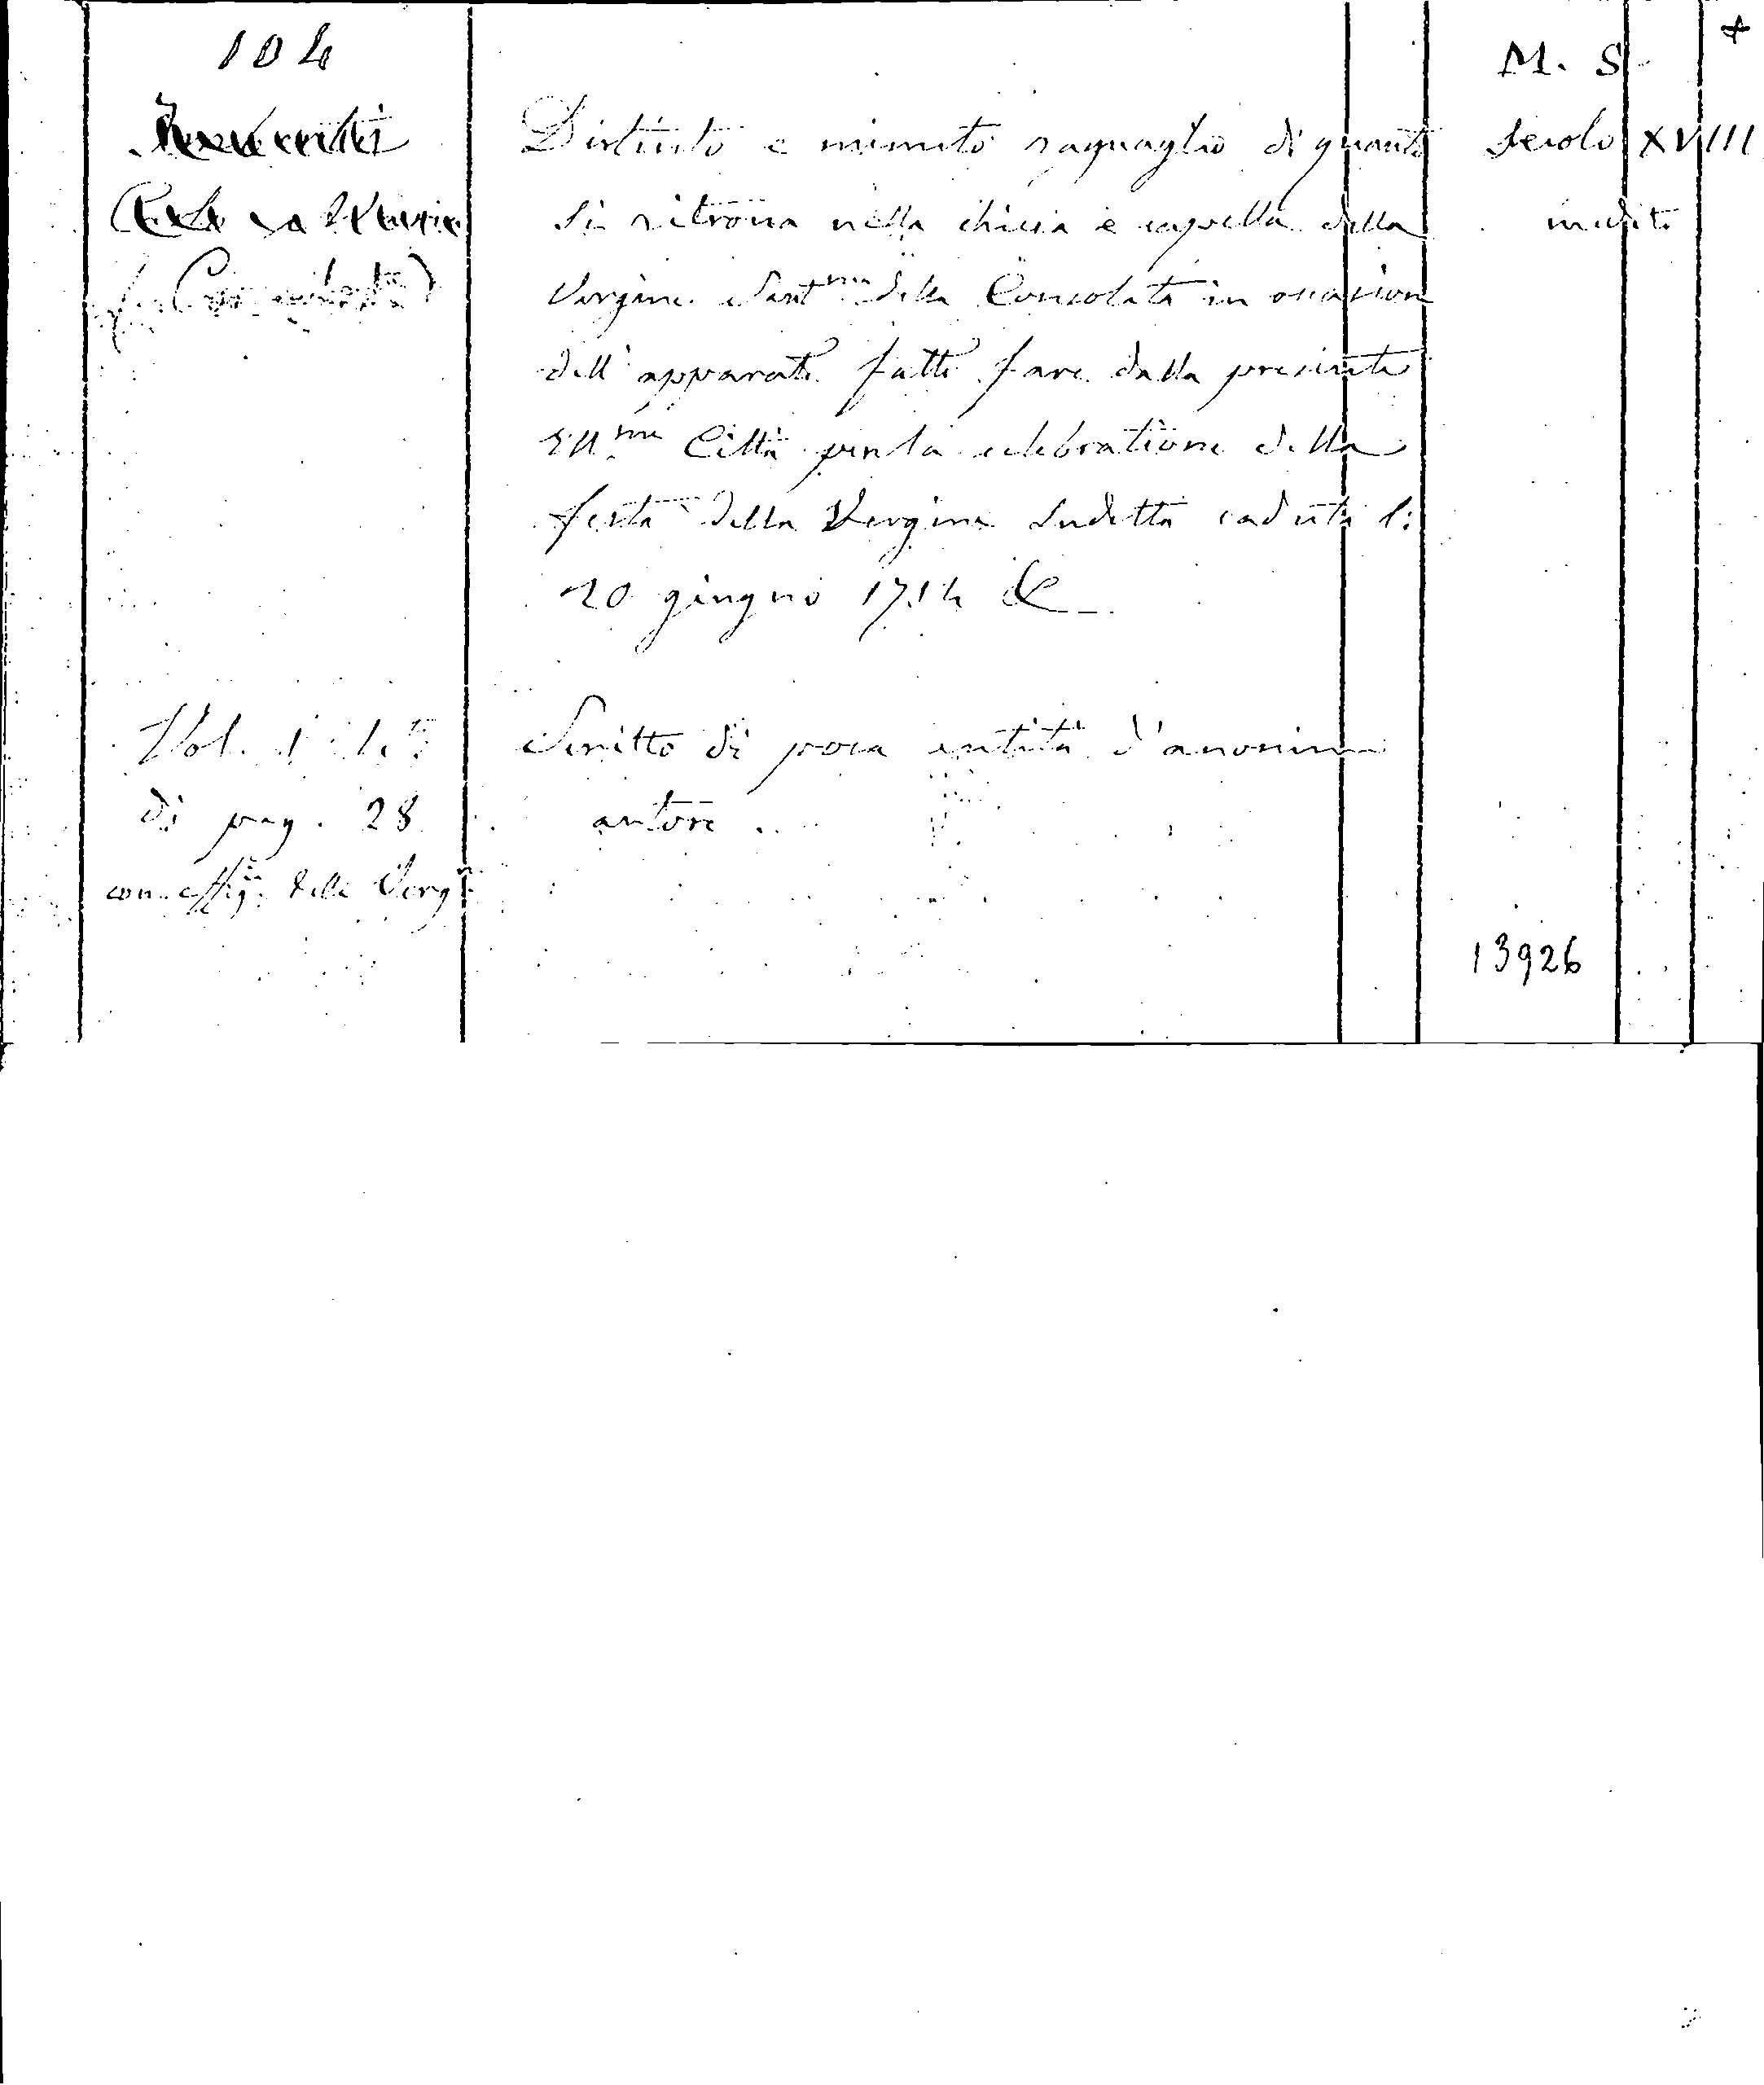 104
M. S.
+
Distinto e minuto raguaglio di quanto
Secolo XVIII
si ritrova nella chiesa e cappella della
inedito
Vergine Sant.ma della Consolata in occasione
dell'apparato fatto fare dalla presente
Ill.ma Città per la celebratione della
festa della Vergine sudetta caduta li
20 giugno 1714 &
Vol. 1 in 4.°
Scritto di poca entità d'anonimo
di pag. 28
autore
con effig. della Verg.
13926